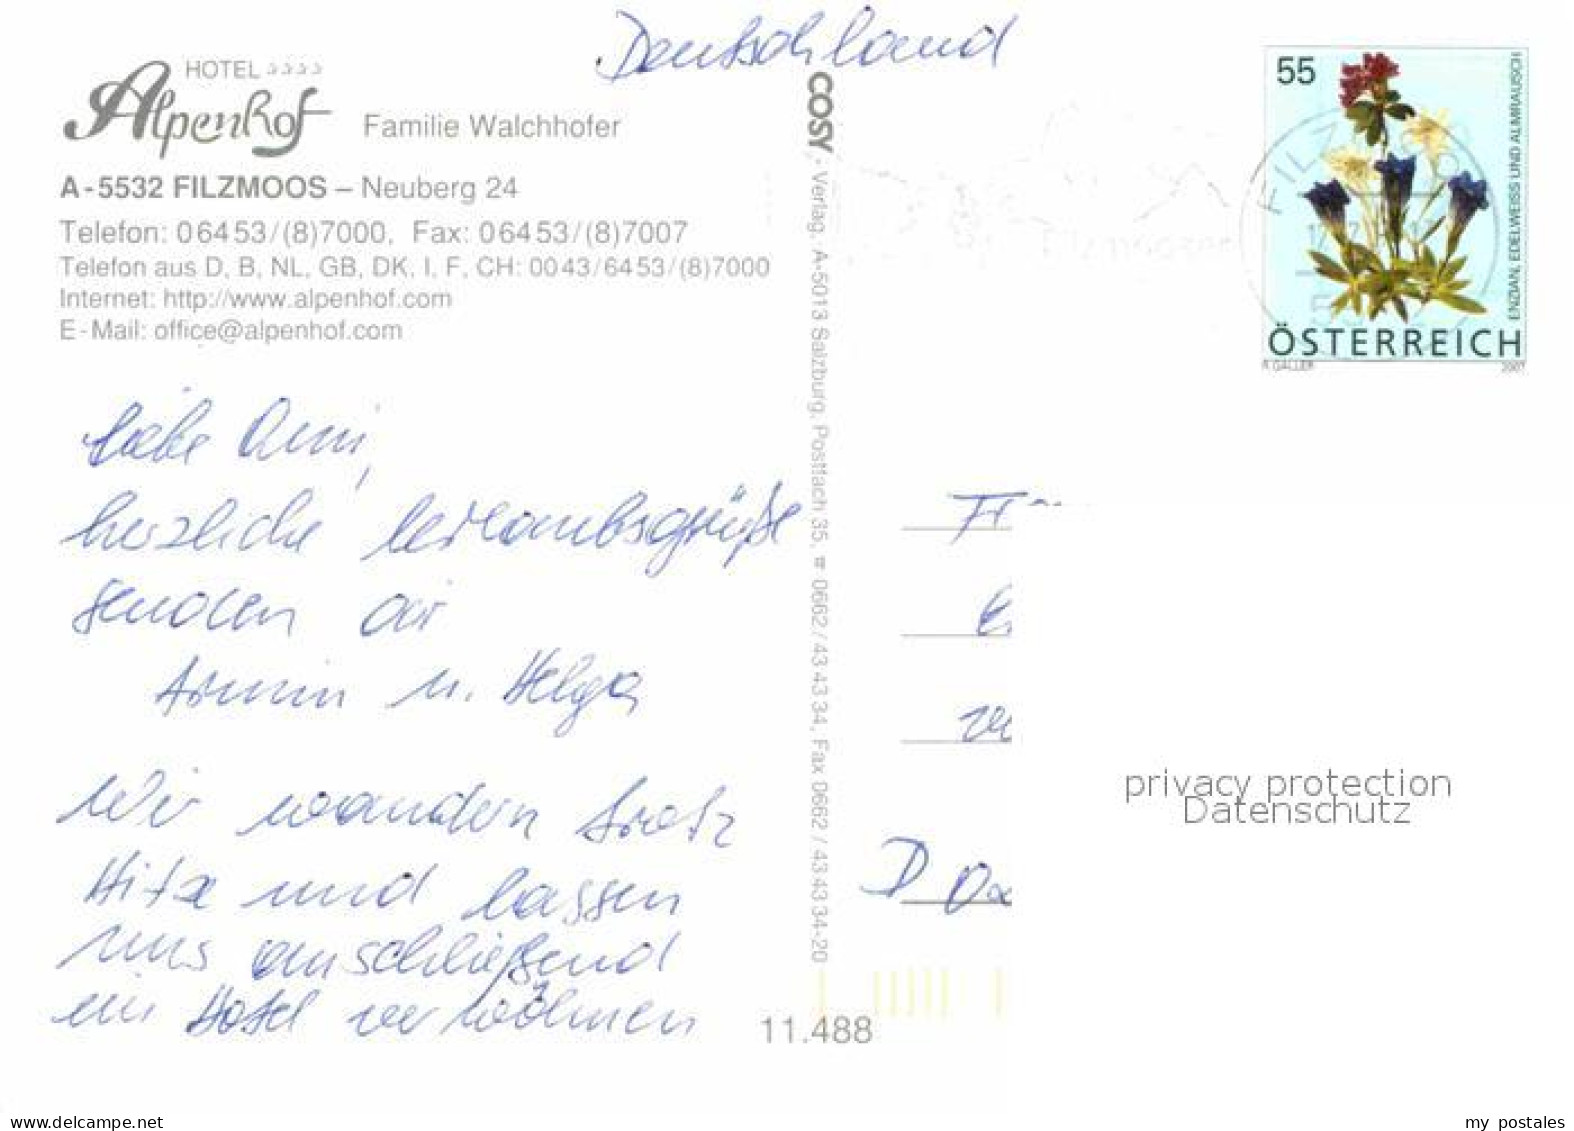 Deutschland
HOTEL
Alpenhof
Familie Walchhofer
A-5532 FILZMOOS – Neuberg 24
Telefon: 06453/(8)7000, Fax: 06453/(8)7007
Telefon aus D, B, NL, GB, DK, I, F, CH: 0043/6453/(8)7000
Internet: http://www.alpenhof.com
E-Mail: office@alpenhof.com
Liebe
herzliche Urlaubsgrüße
senden dir
Armin u. Helga
Wir wandern trotz
Hitze und lassen
uns anschließend
im Hotel verwöhnen
COSY - Verlag, A-5013 Salzburg, Postfach 35, ☎ 0662/43 43 34, Fax 0662 / 43 43 34-20
11.488
55
ENZIAN, EDELWEISS UND ALMRAUSCH
ÖSTERREICH
R. GALLER 2007
FILZ
D
privacy protection
Datenschutz
www.delcampe.net
my_postales